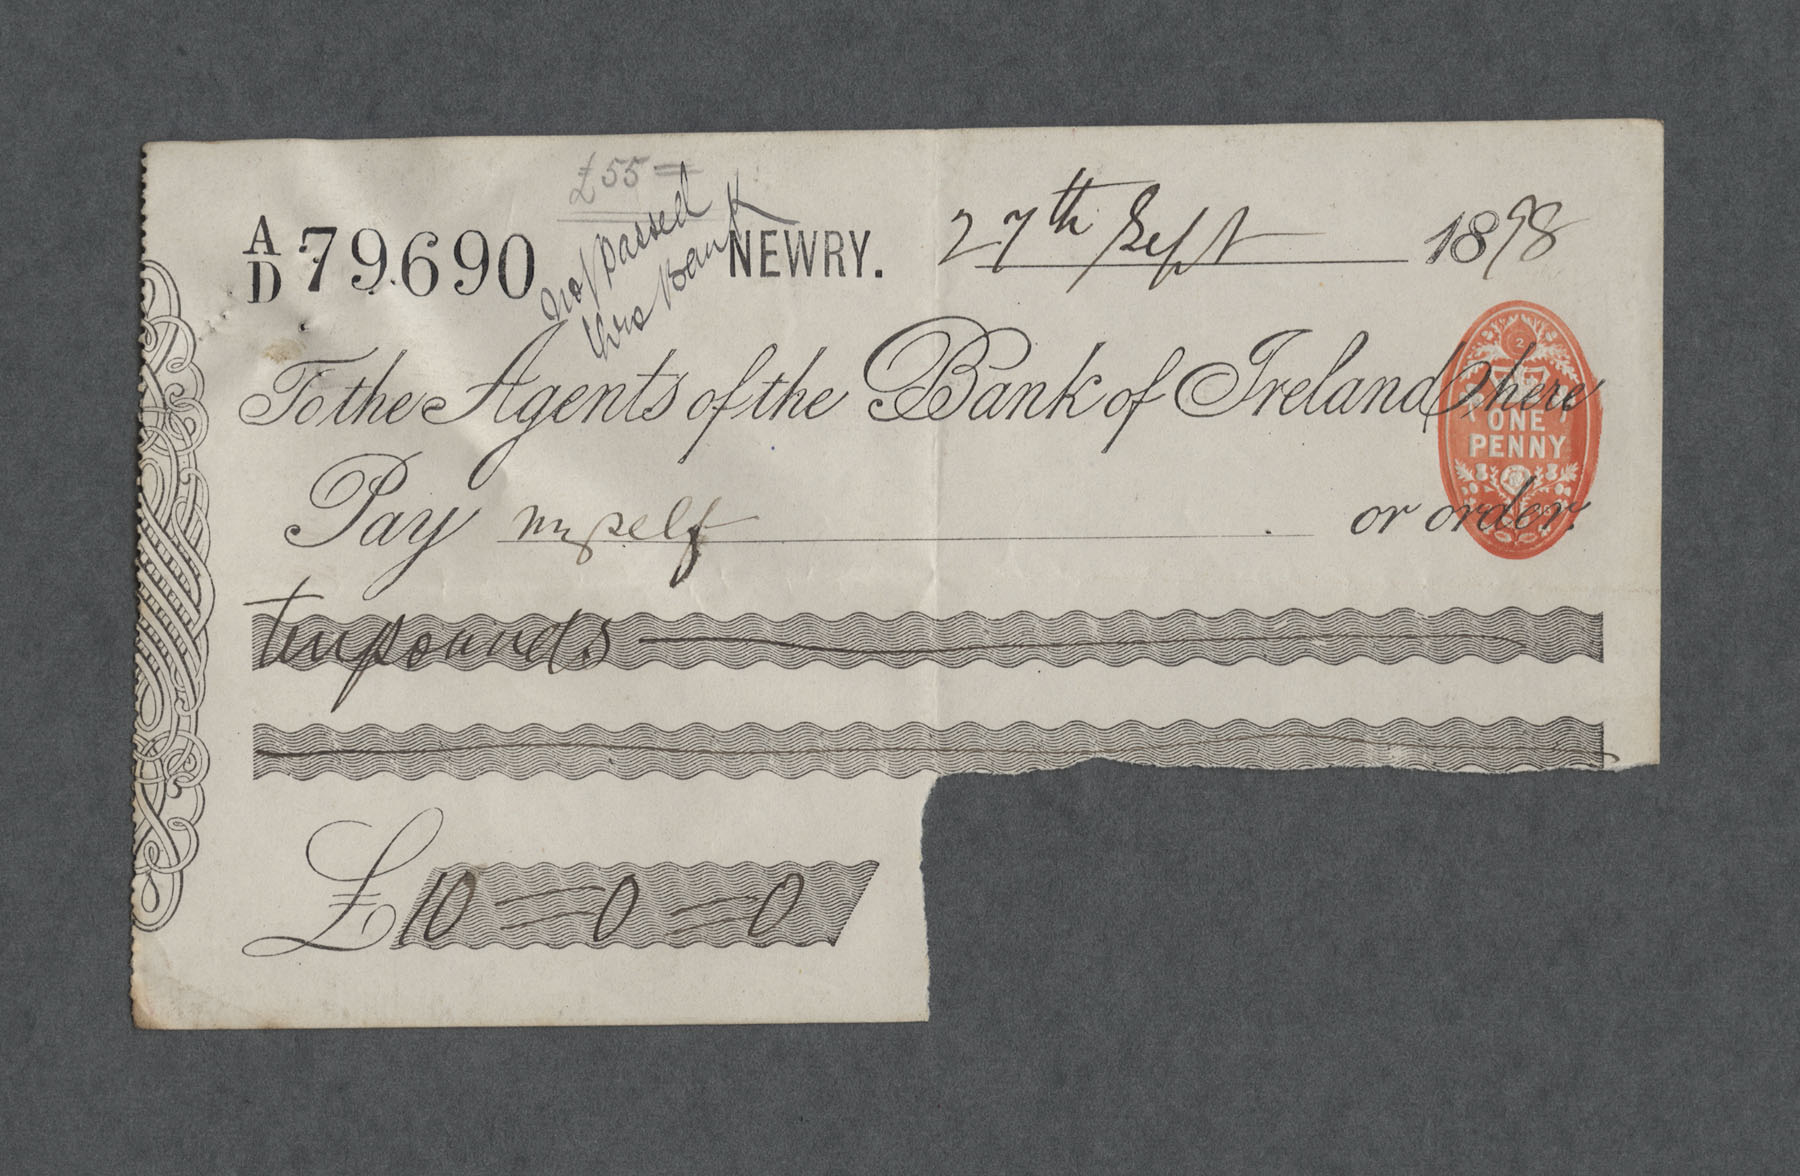 £55=
not passed
this Bank
A/D 79690 NEWRY. 27th Sept 1898
To the Agents of the Bank of Ireland, here
ONE
PENNY
Pay myself or order.
ten pounds
£10=0=0
2